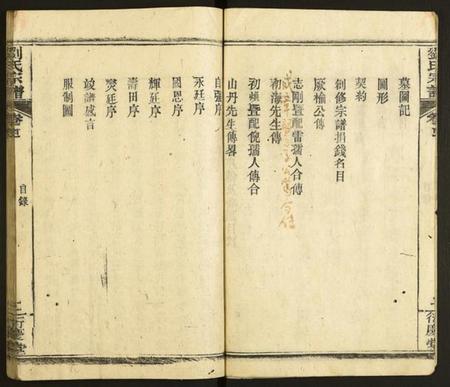 劉氏宗譜
墓圖記
圖形
契約
創修宗譜捐錢名目
厥榆公傳
志剛暨配雷孺人合傳
初海先生傳
初頭暨配倪孺人傳合
山丹先生傳畧
自強序
永廷序
國恩序
輝廷序
壽田序
奕廷序
竣譜感言
服制圖
劉氏宗譜
卷首
目錄
二